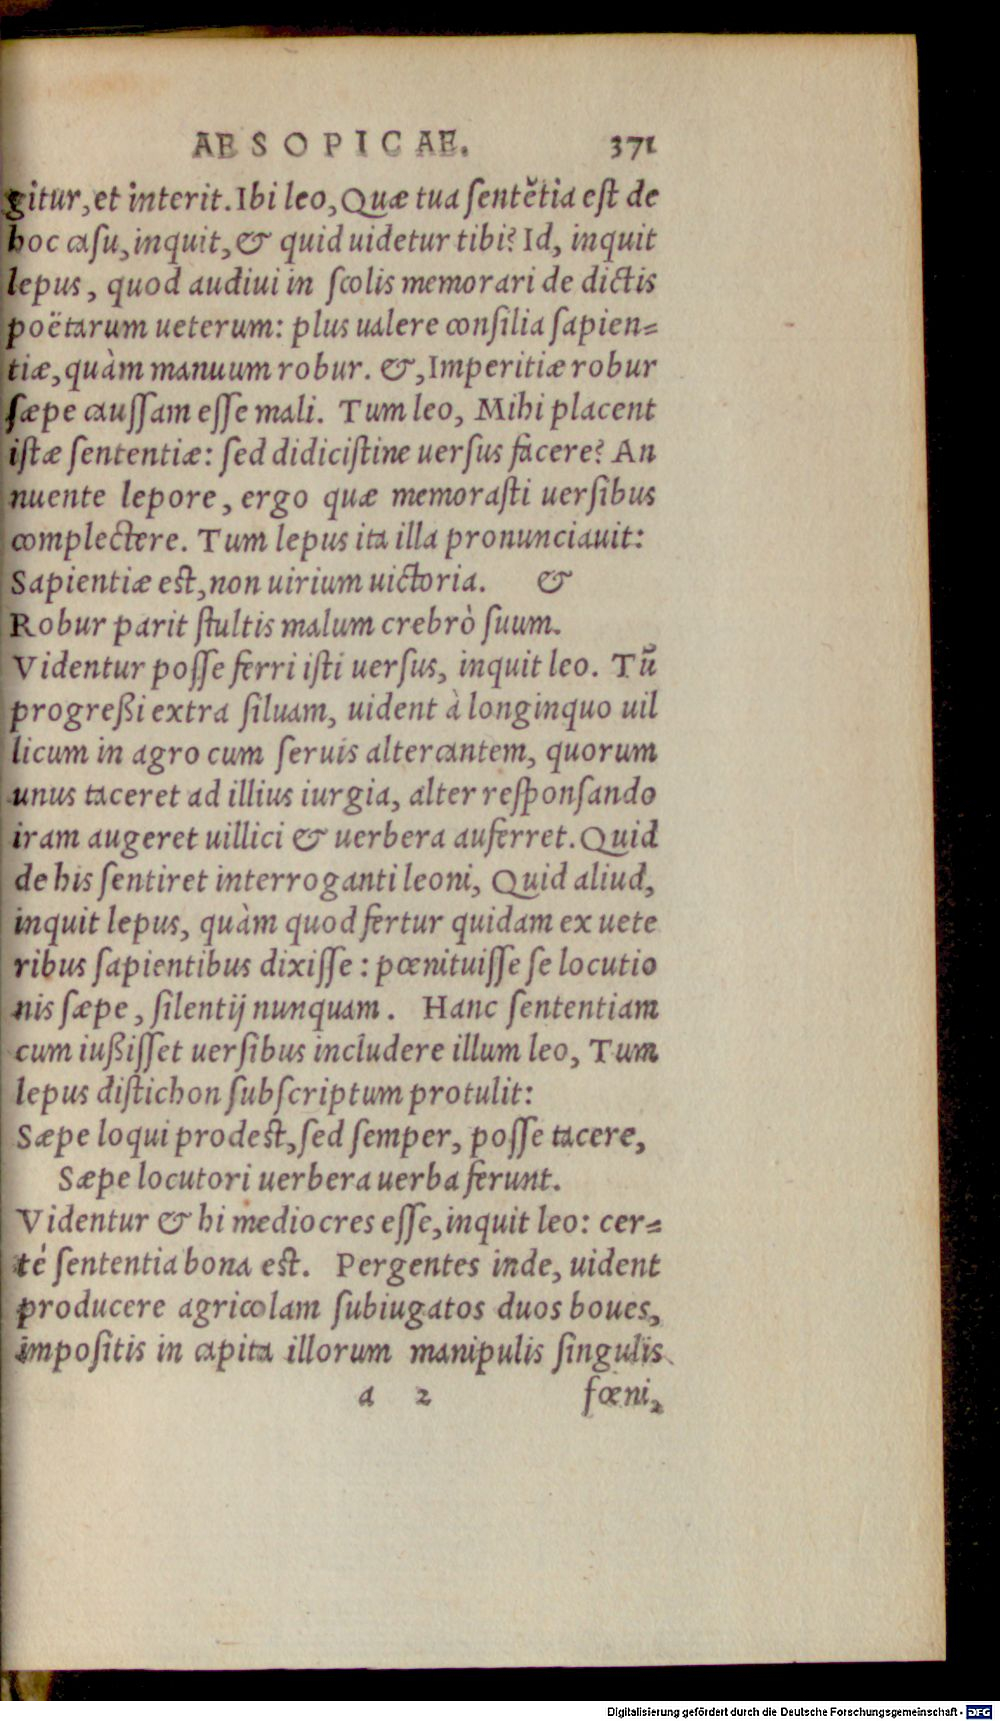 AESOPICAE. 371
gitur, et interit. Ibi leo, Quæ tua sentẽtia est de
hoc casu, inquit, & quid uidetur tibi? Id, inquit
lepus, quod audiui in scolis memorari de dictis
poëtarum ueterum: plus ualere consilia sapien=
tiæ, quàm manuum robur. &, Imperitiæ robur
sæpe caussam esse mali. Tum leo, Mihi placent
istæ sententiæ: sed didicistine uersus facere? An
nuente lepore, ergo quæ memorasti uersibus
complectere. Tum lepus ita illa pronunciauit:
Sapientiæ est, non uirium uictoria. &
Robur parit stultis malum crebrò suum.
Videntur posse ferri isti uersus, inquit leo. Tũ
progreßi extra siluam, uident à longinquo uil
licum in agro cum seruis altercantem, quorum
unus taceret ad illius iurgia, alter responsando
iram augeret uillici & uerbera auferret. Quid
de his sentiret interroganti leoni, Quid aliud,
inquit lepus, quàm quod fertur quidam ex uete
ribus sapientibus dixisse: pœnituisse se locutio
nis sæpe, silentij nunquam. Hanc sententiam
cum iußisset uersibus includere illum leo, Tum
lepus distichon subscriptum protulit:
Sæpe loqui prodest, sed semper, posse tacere,
Sæpe locutori uerbera uerba ferunt.
Videntur & hi mediocres esse, inquit leo: cer=
té sententia bona est. Pergentes inde, uident
producere agricolam subiugatos duos boues,
impositis in capita illorum manipulis singulis
a 2 fœni,
Digitalisierung gefördert durch die Deutsche Forschungsgemeinschaft - DFG